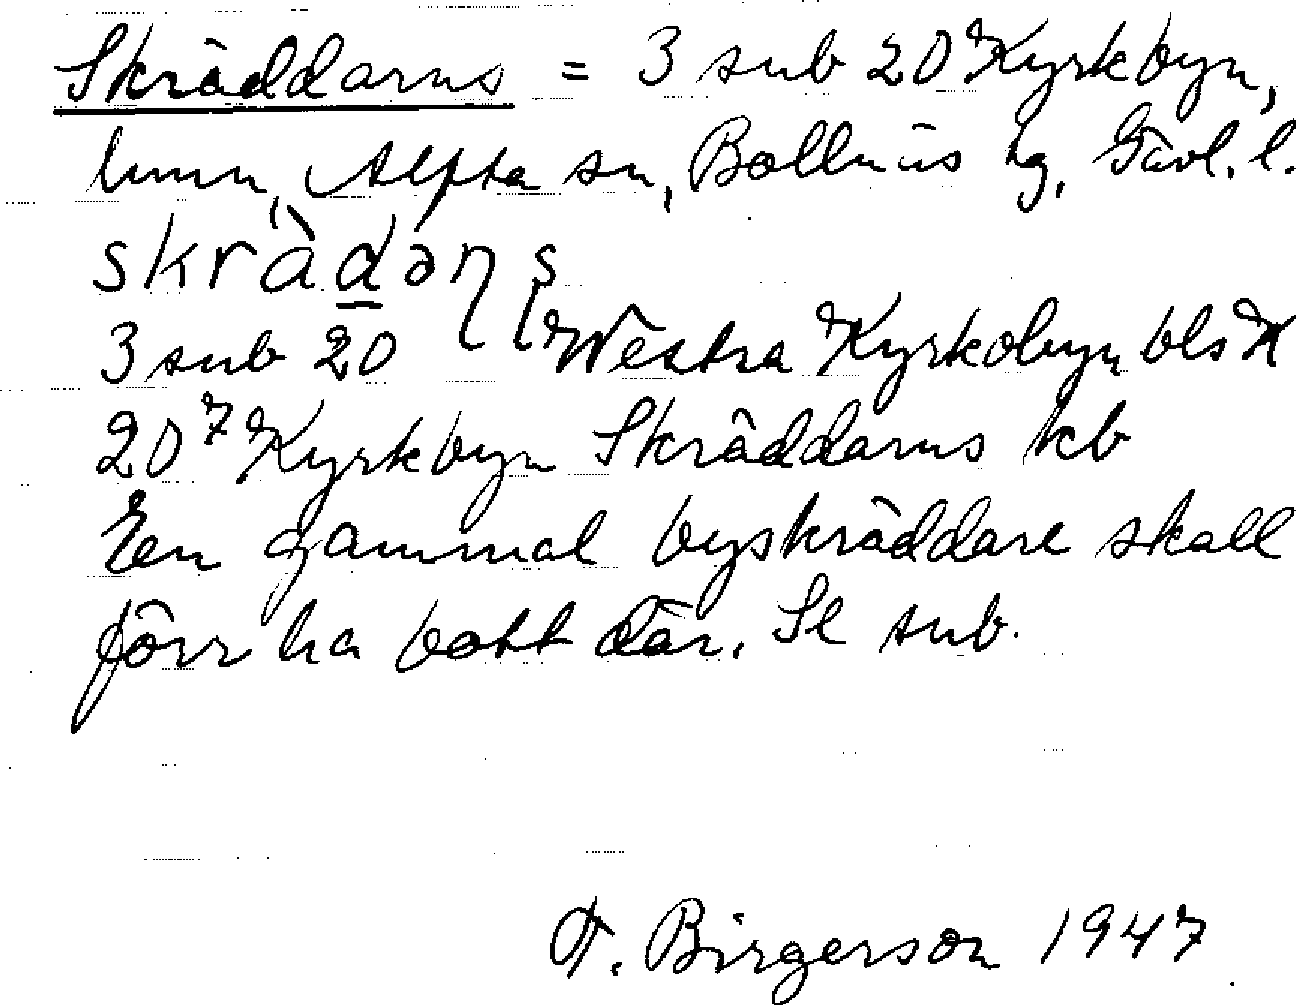 Skräddarns = 3 sub 20 Kyrkbyn,
hmn, Alfta sn, Bollnäs hg, Gävl. l.
skràdaɳʂ
3 sub 20 Westra Kyrkobyn bls X
20⁷ Kyrkbyn Skräddarns kb
En gammal byskräddare skall
förr ha bott där. Se sub.
T. Birgerson 1947